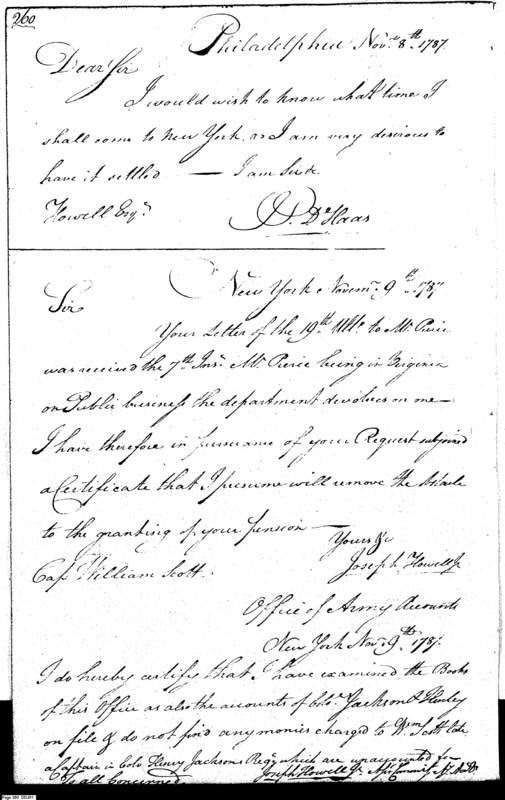 260
Philadelphia Novr. 8th. 1787.
Dear Sir
I would wish to know what time I
shall come to New York, as I am very desirous to
have it settled — I am Sir &c.
Howell Esqr.
J. P. De Haas
New York Novemr. 9th. 1787
Sir
Your Letter of the 19th. Ulto. to Mr. Pierce
was received the 7th. Inst. Mr. Pierce being in Virginia
on Public business the department devolves on me —
I have therefore in pursuance of your Request subjoined
a Certificate that I presume will remove the obstacle
to the granting of your pension —
Yours &c
Cap William Scott.
Joseph Howell Jr
Office of Army Accounts
New York Novr. 9th. 1787.
I do hereby certify that I have examined the Books
of this Office as also the accounts of Colo. Jackson & Henley
on file & do not find any monies charged to Wm. Scott late
a Captain in Colo. Henry Jacksons Regt. which are unaccounted for
To all Concerned
Joseph Howell Jr.
Page 260 DDJ01